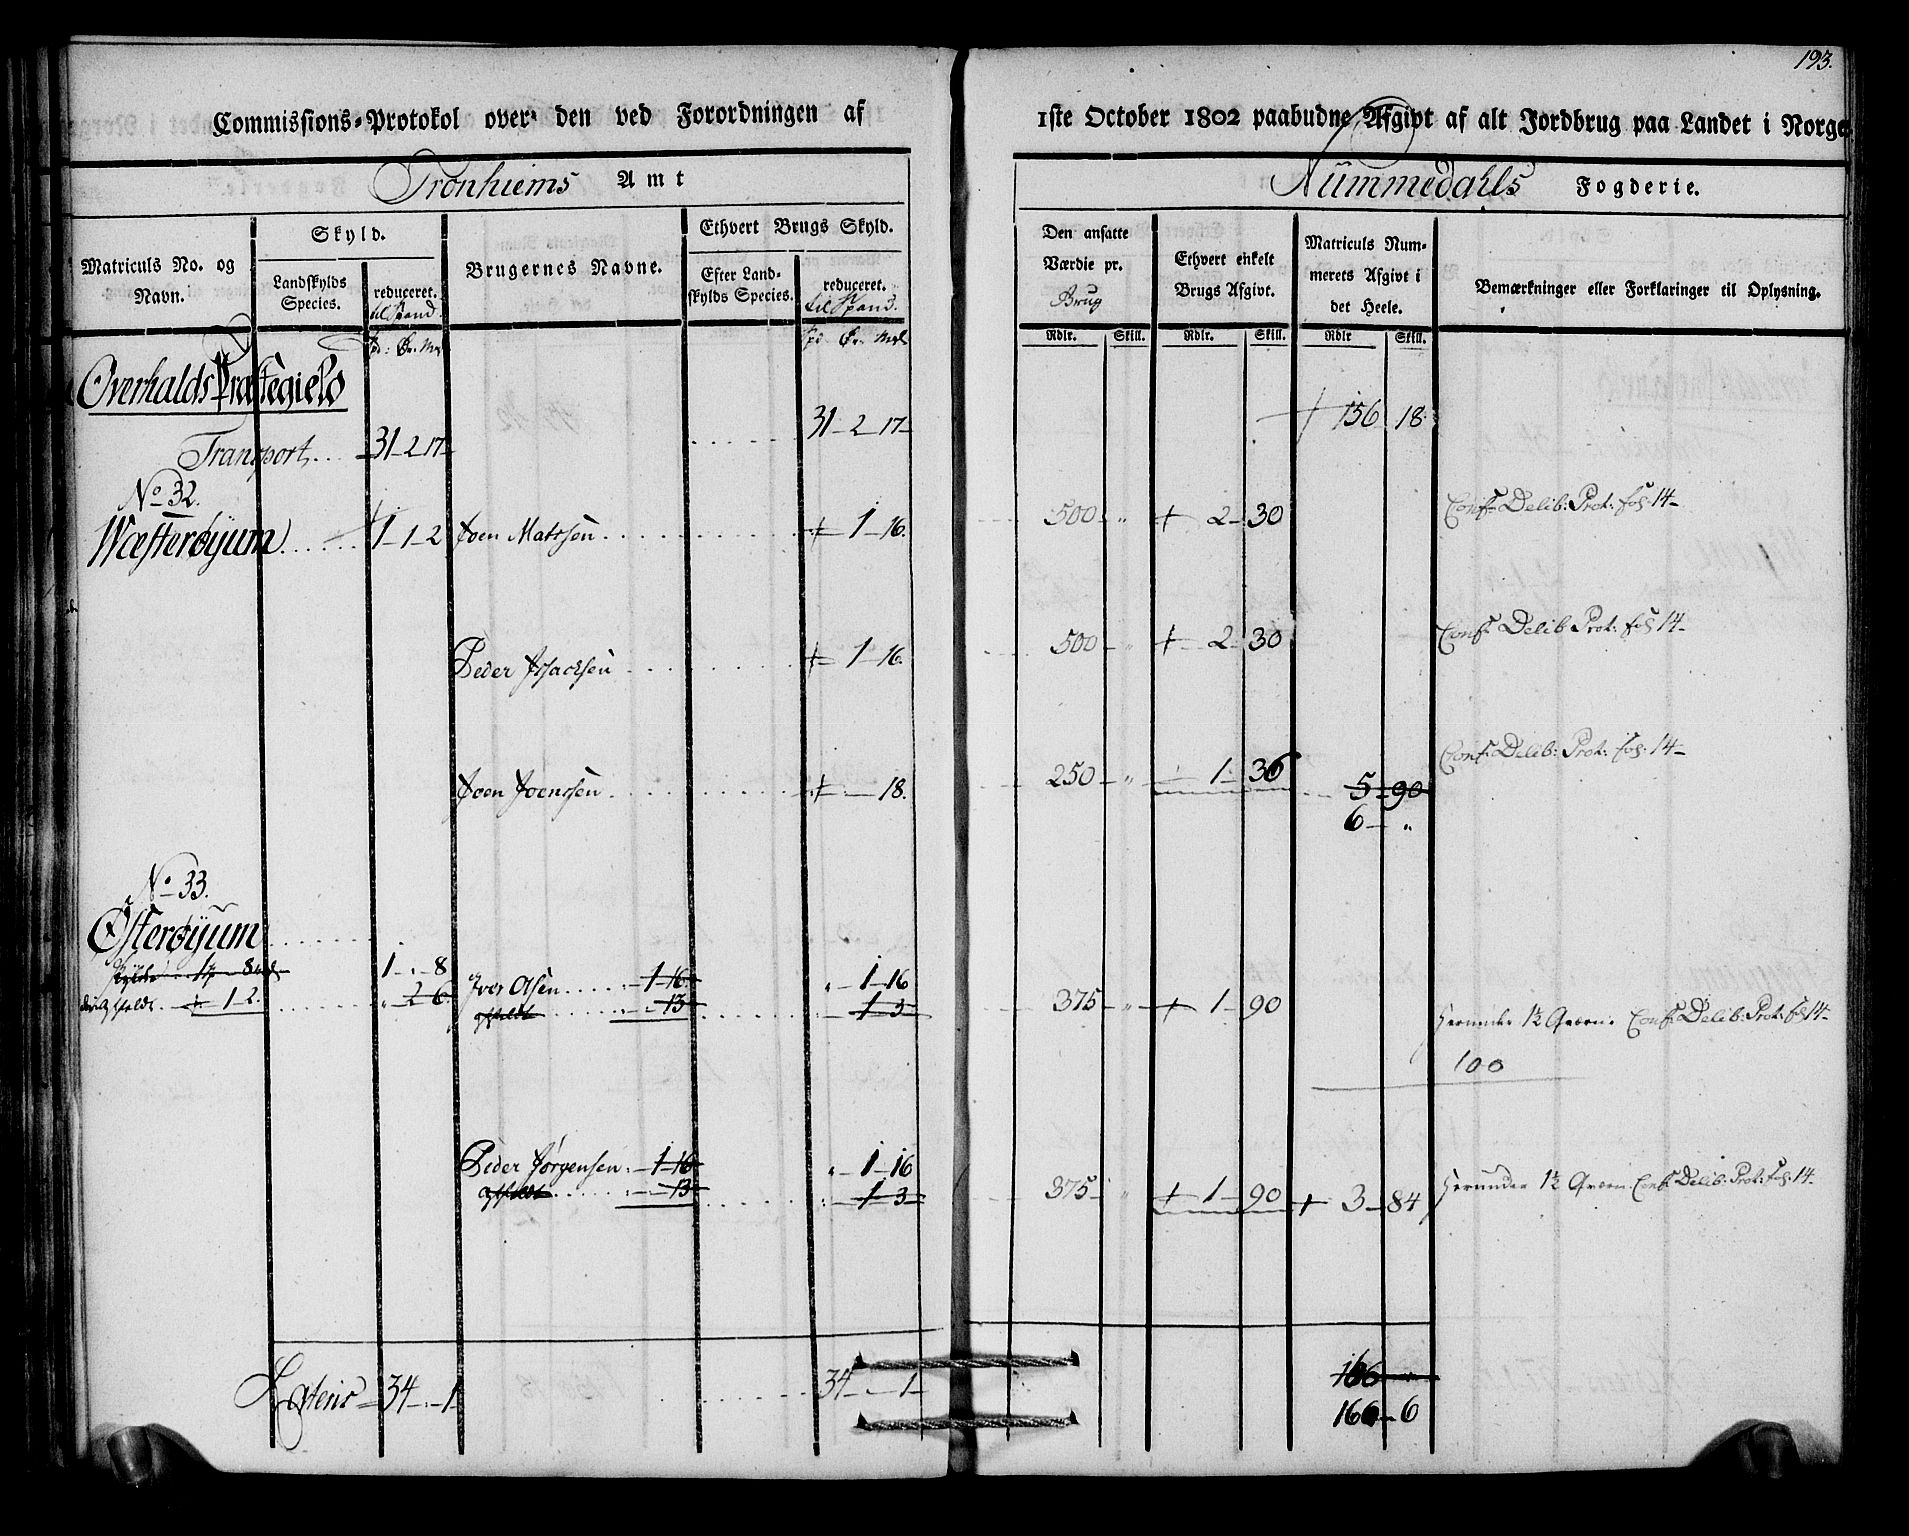 193.
Commissions-Protokol over den ved Forordningen af 1ste October 1802 paabudne Afgivt af alt Jordbrug paa Landet i Norge
Tronhiems Amt
Nummedahls Fogderie.
Matriculs No. og Navn.
Skyld.
Landskylds Species.
reduceret. til Spand
Brugernes Navne.
Ethvert Brugs Skyld.
Efter Landskylds Species.
reduceret. til Spand.
Den ansatte Værdie pr. Brug
Ethvert enkelt Brugs Afgivt.
Matriculs Nummerets Afgivt i det Heele.
Bemærkninger eller Forklaringer til Oplysning.
Spd: Ør. Mrk
Spd. Ør. Mrk
Rdlr. Skill. Rdlr. Skill. Rdlr Skill.
Overhalds Præstegield
Transport. 31-2-17- 31-2-17- 156 18.
No 32.
Wæsterøyum 1-1-2 Joen Matssen 1-16. 500-" 2-30 Conf. Delib: Prot: fol: 14-
Peder Isacksen 1-16. 500-" 2-30 Conf. Delib Prot: fol 14-
Joen Joenssen 18. 250-" 1-36 5-90 Conf: Delib: Prot: fol: 14-
6-"
No 33.
Østerøyum
1-.-8
Skylder 1 8
1-2. "-2-6
Iver Olsen 1-16 "-1-16
affeldt 13 1-3 375-" 1-90 Herunder 1/2 Qværn. Conf: Delib: Prot: fol 14-
100
Peder Jørgensen 1-16 "-1-16
affeldt 13 1-3 375-" 1-90 3-84 Herunder 1/2 Qværn. Conf: Delib: Prot: fol: 14-
166
Lateris 34-.-1 34-.-1- 166-6